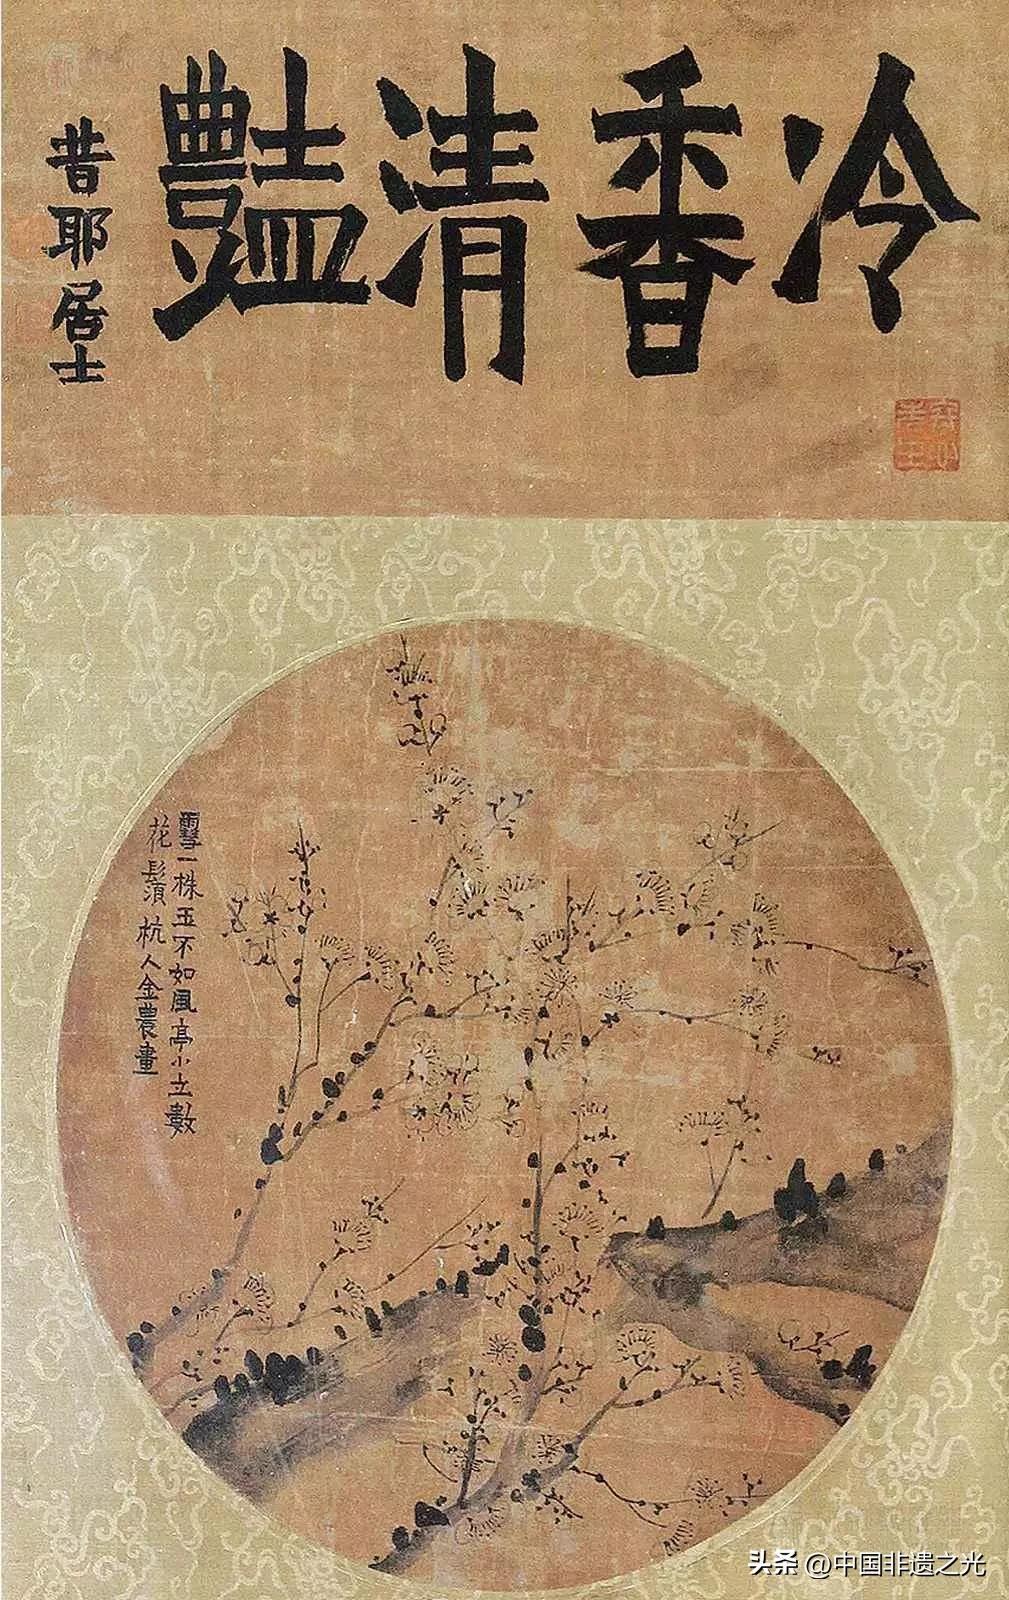 冷香清豔
昔耶居士
䨮一株玉不如風亭小立數
花鬚杭人金農畫
头条 @中国非遗之光